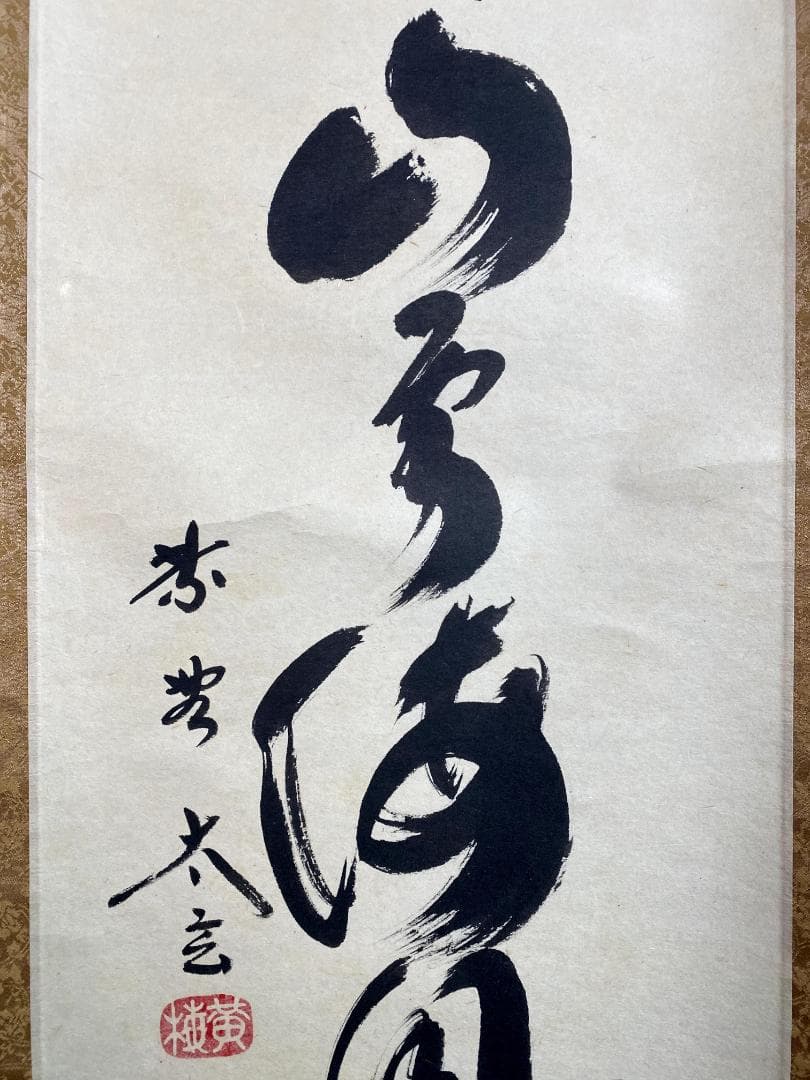 山雲海月
紫野 太玄
黄梅